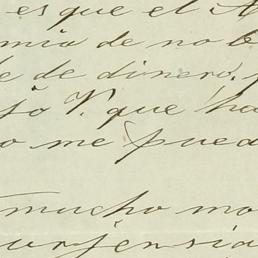 es que el A
mia de no b
le de dinero,
so V. que ha
o me pued
mucho mo
urjensia